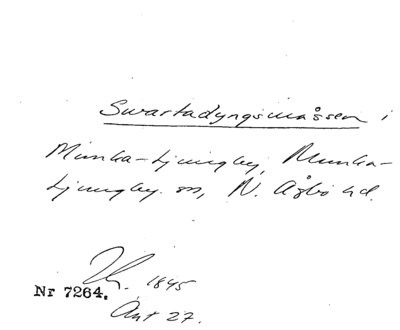 Swartadyngsmåssen i
Munka-Ljungby, Munka-
Ljungby sn, N. Åsbo hd.
1845
Nr 7264.
Ant 27.